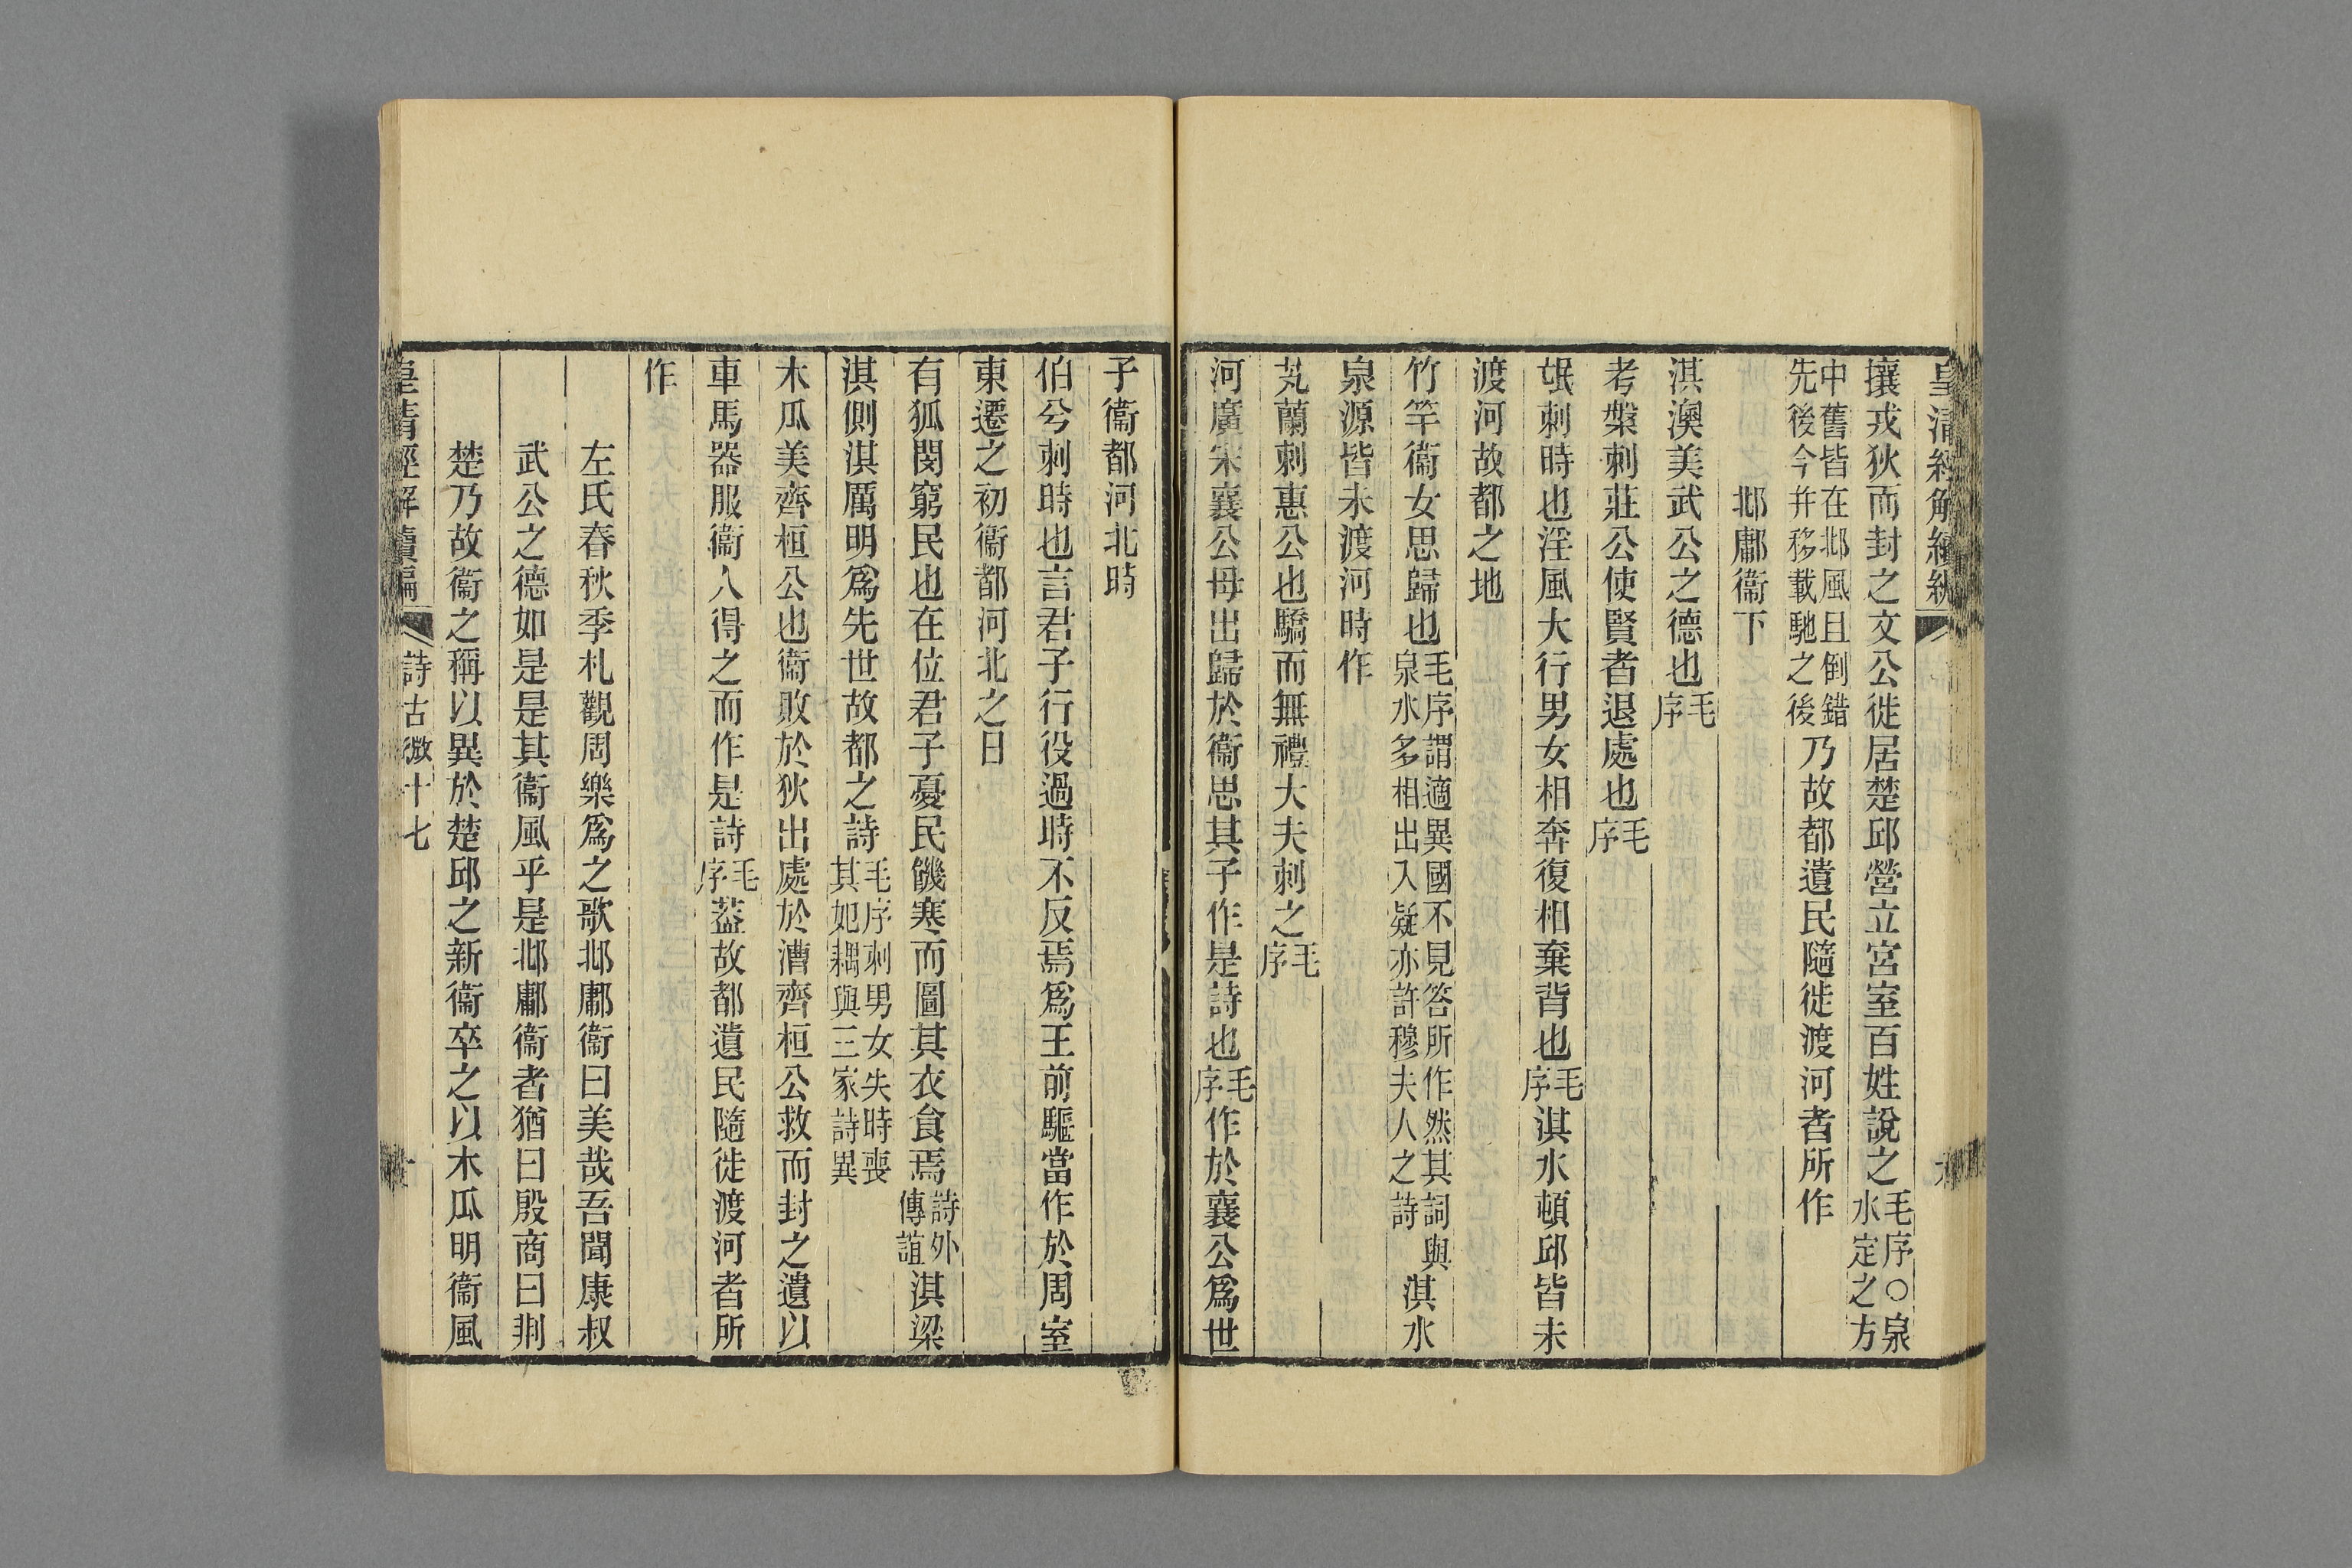 皇清經解續編
攘戎狄而封之文公徙居楚邱營立宮室百姓說之毛序○泉水定之方
中舊皆在邶風且倒錯先後今幷移載馳之後乃故都遺民隨徙渡河者所作
邶鄘衞下
淇澳美武公之德也毛序
考槃刺莊公使賢者退處也毛序
氓刺時也淫風大行男女相奔復相棄背也毛序淇水頓邱皆未
渡河故都之地
竹竿衞女思歸也毛序謂適異國不見答所作然其詞與泉水多相出入疑亦許穆夫人之詩淇水
泉源皆未渡河時作
芄蘭刺惠公也驕而無禮大夫刺之毛序
河廣宋襄公母出歸於衞思其子作是詩也毛序作於襄公爲世
子衞都河北時
伯兮刺時也言君子行役過時不反焉爲王前驅當作於周室
東遷之初衞都河北之日
有狐閔窮民也在位君子憂民饑寒而圖其衣食焉詩外傳誼淇梁
淇側淇厲明爲先世故都之詩毛序刺男女失時喪其妃耦與三家詩異
木瓜美齊桓公也衞敗於狄出處於漕齊桓公救而封之遺以
車馬器服衞人得之而作是詩毛序葢故都遺民隨徙渡河者所
作
左氏春秋季札觀周樂爲之歌邶鄘衞曰美哉吾聞康叔
武公之德如是是其衞風乎是邶鄘衞者猶曰殷商曰荆
楚乃故衞之稱以異於楚邱之新衞卒之以木瓜明衞風
皇清經解續編 詩古微十七